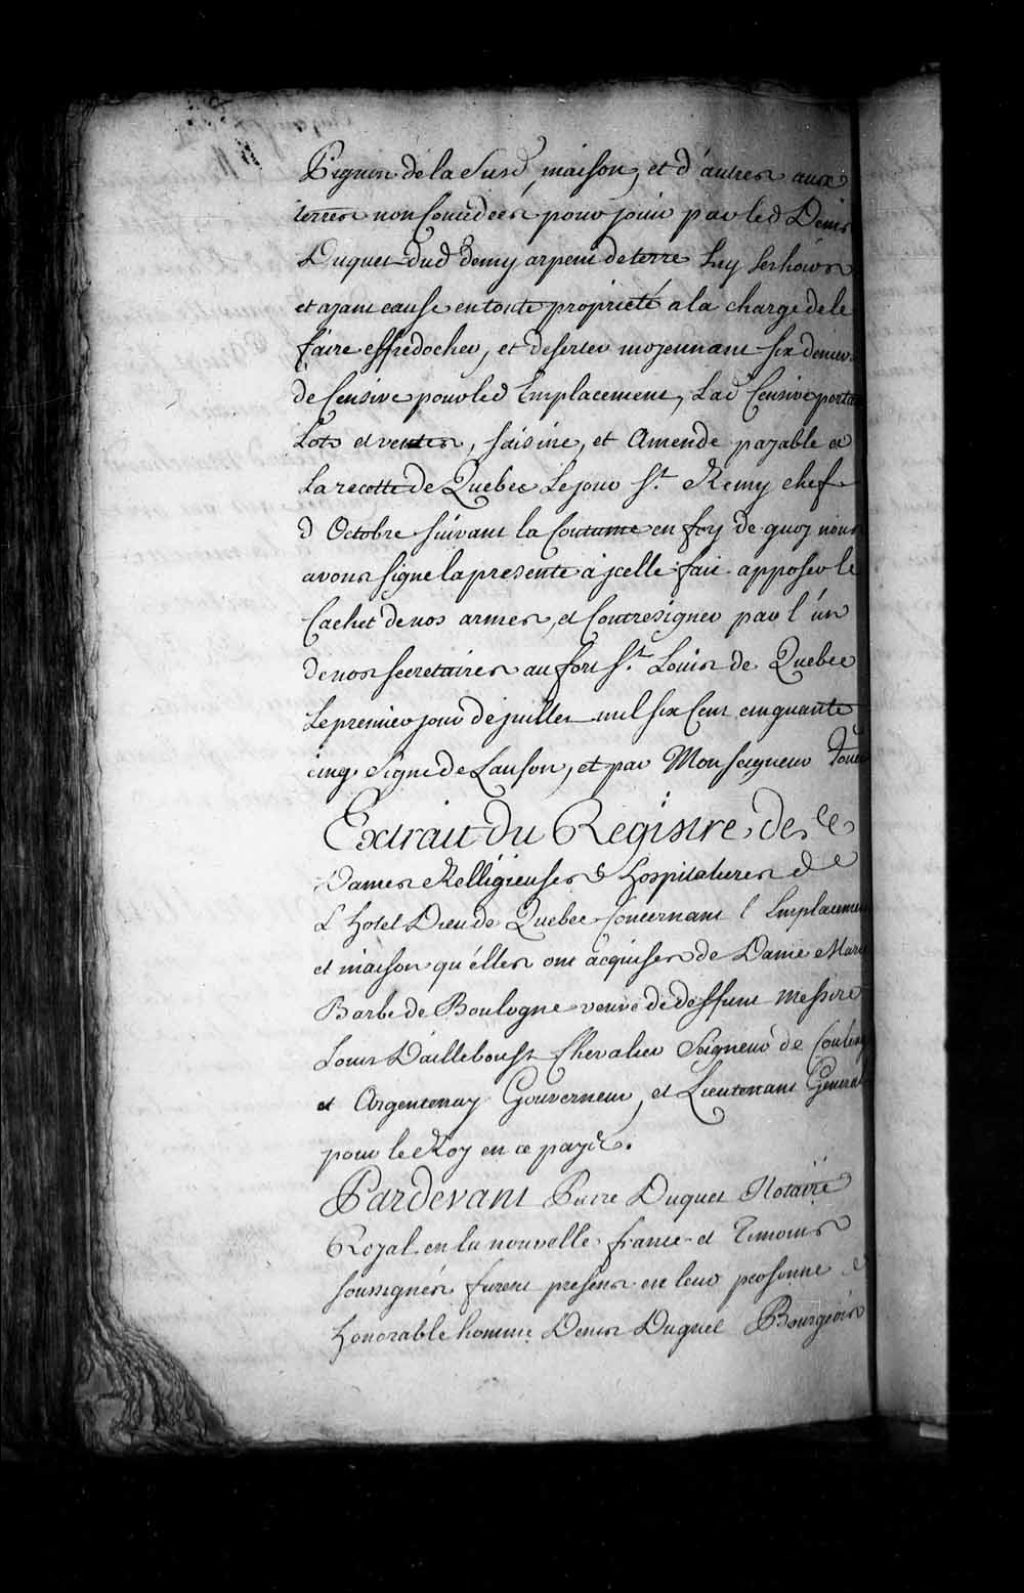 Pignon de la Susd. maison, et d'autres aux
terres non Concedées pour jouir par led Denis
Duquet dud demy arpent de terre Luy ses hoirs
et ayant cause en toute proprieté a la charge de le
faire effredocher, et deserter moyennant six deniers
de Censive pour led Emplacement, Lad Censive porta
Lots et ventes, saisine, et Amende payable a
La recette de Quebec Le jour St. Remy chef
d Octobre suivant la Coutume en foy de quoy nous
avons signe la presente a jcelle fait apposer le
Cachet de nos armes, et Contresigner par l'un
de nos secretaires au fort St. Louis de Quebec
Le premier jour de juillet mil six Cent cinquante
cinq. Signé de Lauson, et par Monseigneur
Extrait du Registre des
Dames Relligieuses hospitalieres de
L'hotel Dieu de Quebec Concernant l'Emplacement
et maison qu'elles ont acquises de Dame Marie
Barbe de Boulogne veuve de deffunt messire
Louis Dailleboust Chevalier Seigneur de Coulonge
et Argentenay Gouverneur, et Lieutenant General
pour le Roy en ce pays.
Pardevant Pierre Duquet Notaire
Royal en la nouvelle france et Temoins
soussignés furent presens en leur personne
honorable homme Denis Duquet Bourgeois